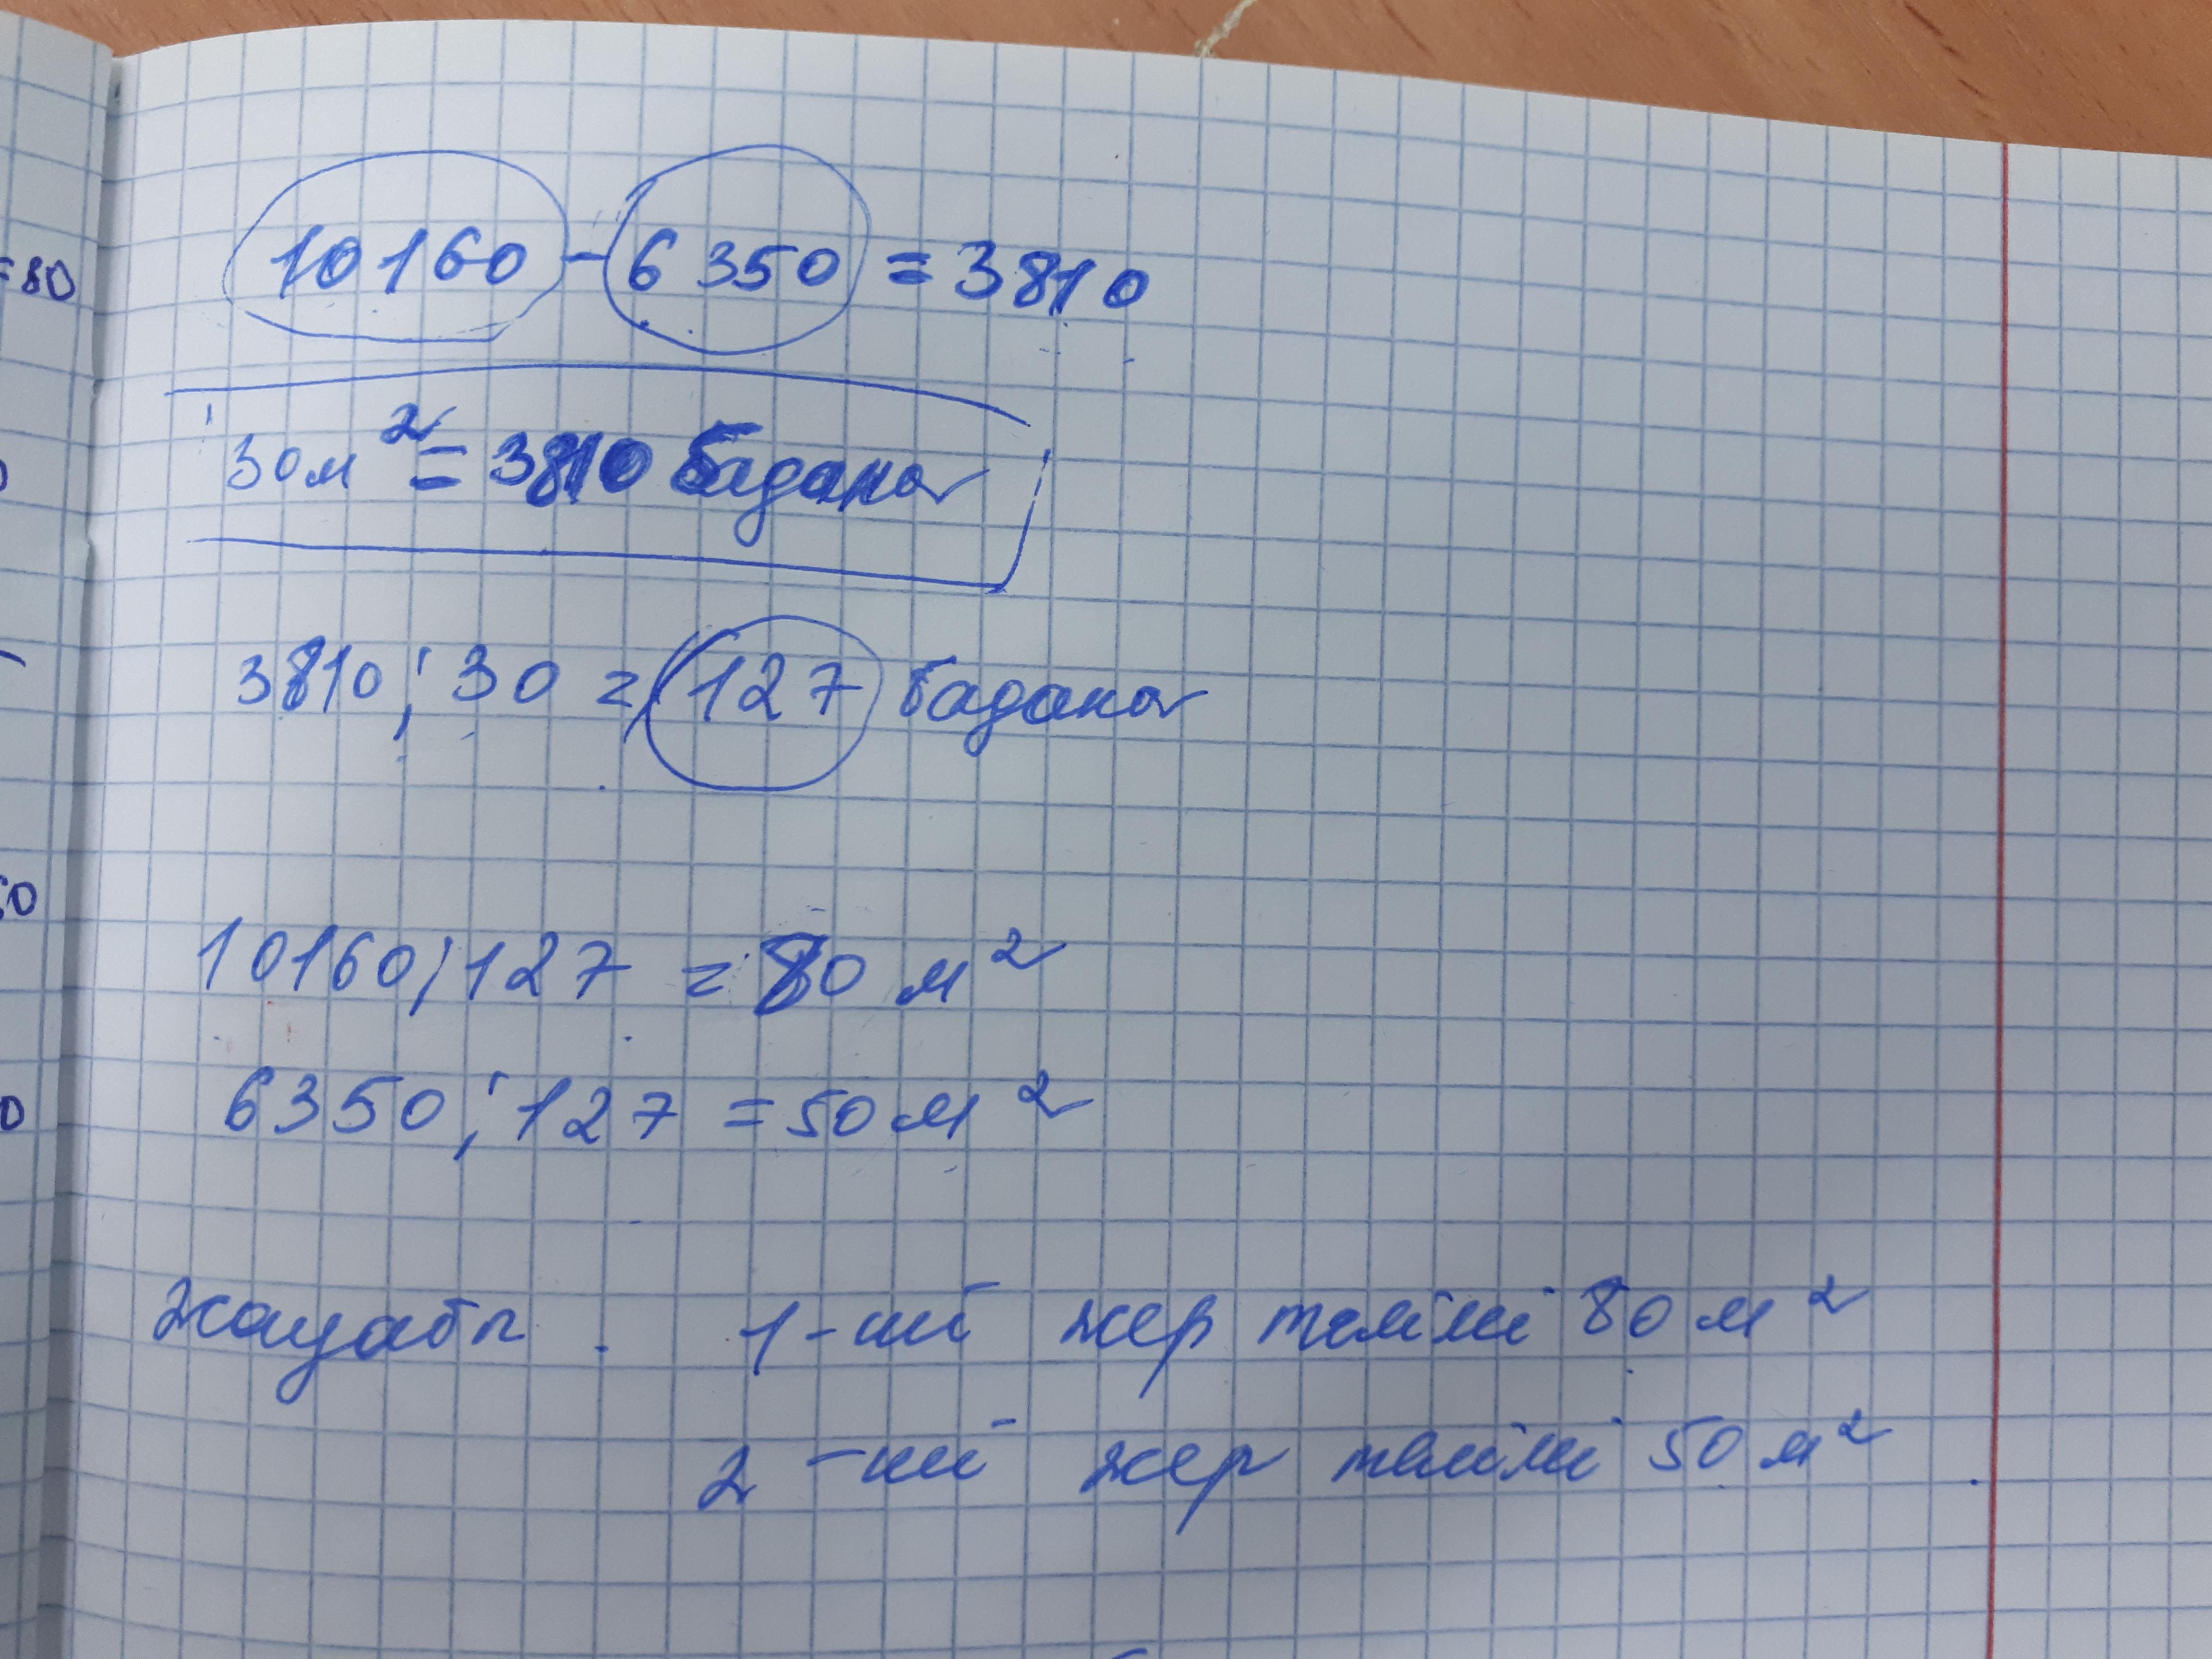 =80
10160 - 6350 = 3810
30м² = 3810 бадана
3810 : 30 = 127 бадана
10160 : 127 = 80 м²
50
6350 : 127 = 50 м²
0
жауабы. 1-ші жер телімі 80 м²
2-ші жер телімі 50 м².